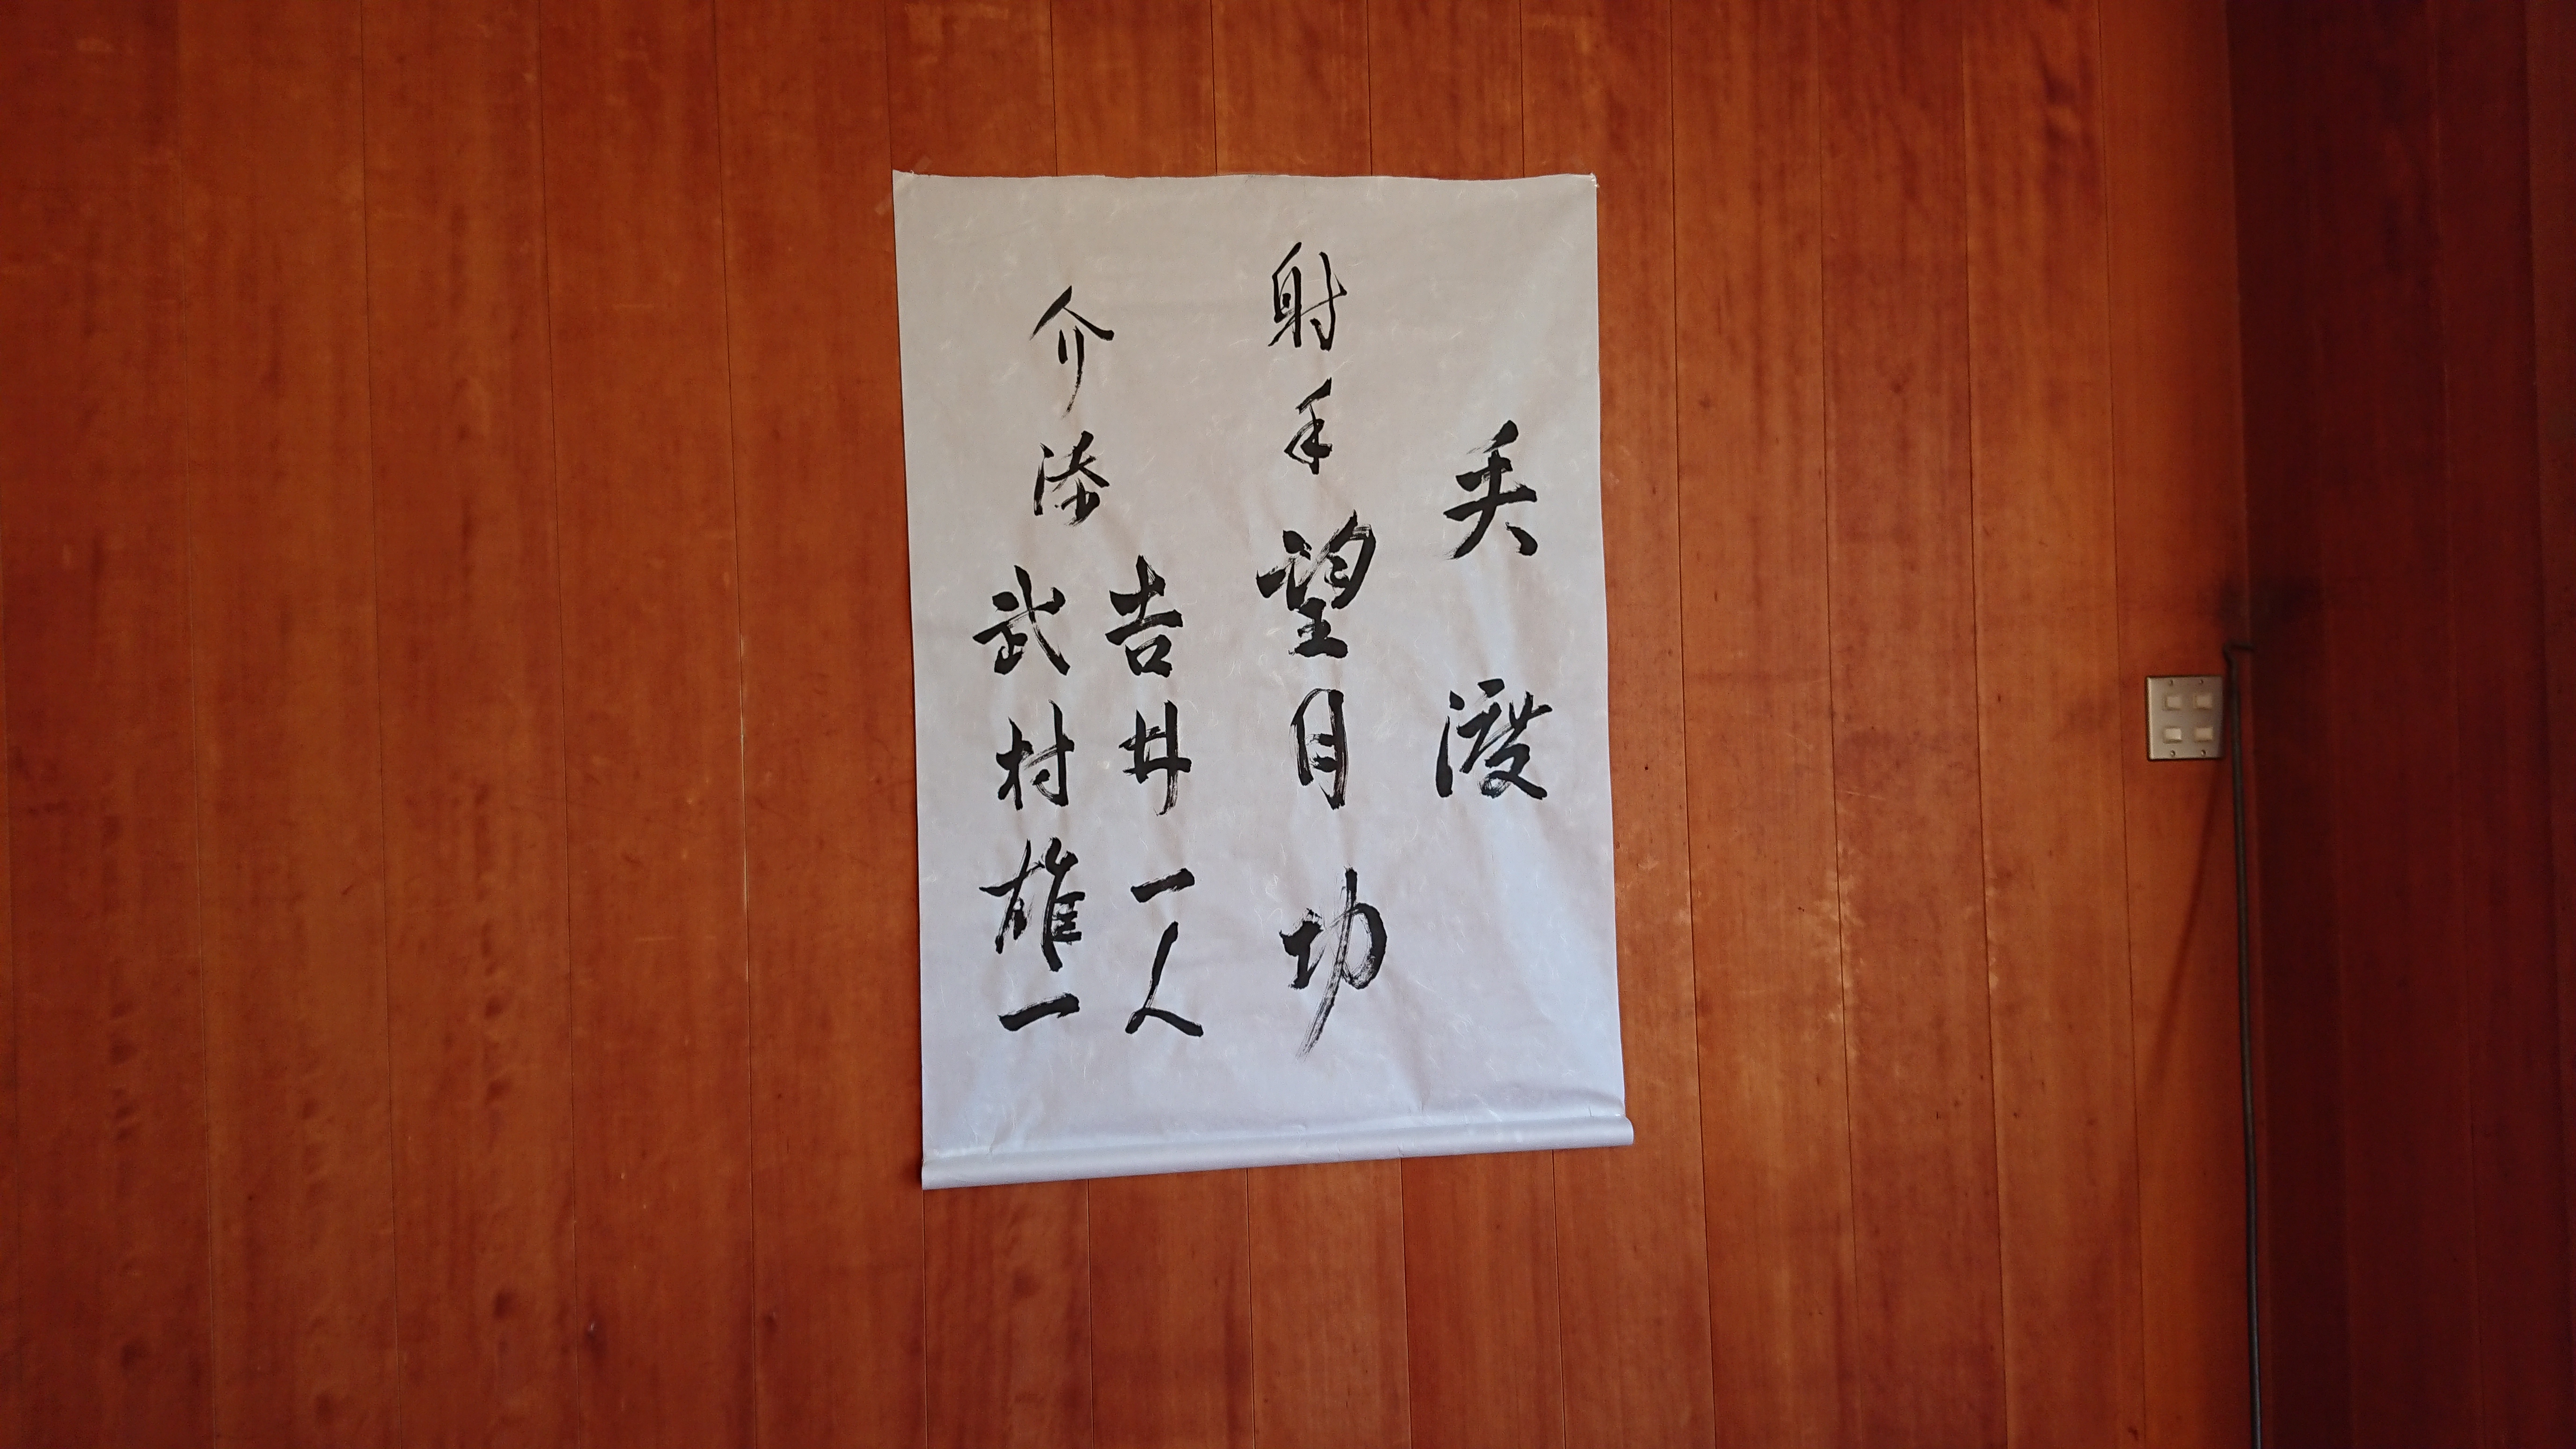 矢渡
射手 望月 功
介添 吉井一人
武村雄一